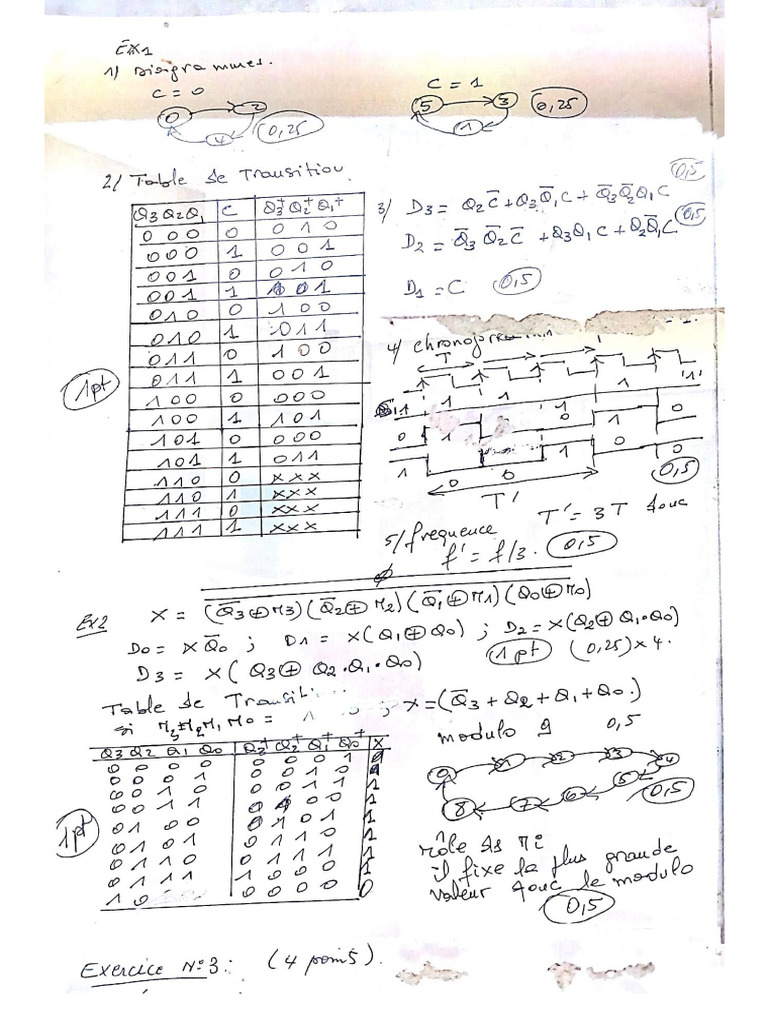 Ex1
1) Diagrammes.
C = 0
C = 1
0 2 4 0,25
5 3 1 0,25
2/ Table de Transition
Q3 Q2 Q1 C Q3⁺ Q2⁺ Q1⁺
0 0 0 0 0 1 0
0 0 0 1 0 0 1
0 0 1 0 0 1 0
0 0 1 1 1 0 1
0 1 0 0 1 0 0
0 1 0 1 0 1 1
0 1 1 0 1 0 0
0 1 1 1 0 0 1
1 0 0 0 0 0 0
1 0 0 1 1 0 1
1 0 1 0 0 0 0
1 0 1 1 0 1 1
1 1 0 0 x x x
1 1 0 1 x x x
1 1 1 0 x x x
1 1 1 1 x x x
1pt
3/ D3 = Q2C̅ + Q3Q̅1C + Q̅3Q̅2Q1C 0,5
D2 = Q̅3Q̅2C̅ + Q3Q1C + Q2Q̅1C 0,5
D1 = C 0,5
4/
T
1 1 1 1 1
0 1 0 1 0
1 0 0 1 0
T' 0,5
T' = 3T donc
5/ frequence
f' = f/3. 0,5
Ex2 X = (Q̅3⊕M3)(Q̅2⊕M2)(Q̅1⊕M1)(Q0⊕M0)
D0 = XQ̅0 ; D1 = X(Q1⊕Q0) ; D2 = X(Q2⊕Q1.Q0)
D3 = X(Q3⊕Q2.Q1.Q0) 1pt (0,25)x4.
Table de
si M3M2M1M0 = ; X = (Q̅3 + Q2 + Q1 + Q0)
modulo 9 0,5
Q3 Q2 Q1 Q0 Q3⁺ Q2⁺ Q1⁺ Q0⁺ X
0 0 0 0 0 0 0 1
0 0 0 1 0 0 1 0
0 0 1 0 0 0 1 1 1
0 0 1 1 0 1 0 0 1
0 1 0 0 0 1 0 1 1
0 1 0 1 0 1 1 0 1
0 1 1 0 0 1 1 1 1
0 1 1 1 1 0 0 0 1
1 0 0 0 0 0 0
1pt
0 1 2 3 4
8 7 6 5 0,5
rôle des Mi
il fixe la plus grande
valeur donc le modulo
0,5
Exercice N°3: (4 points).